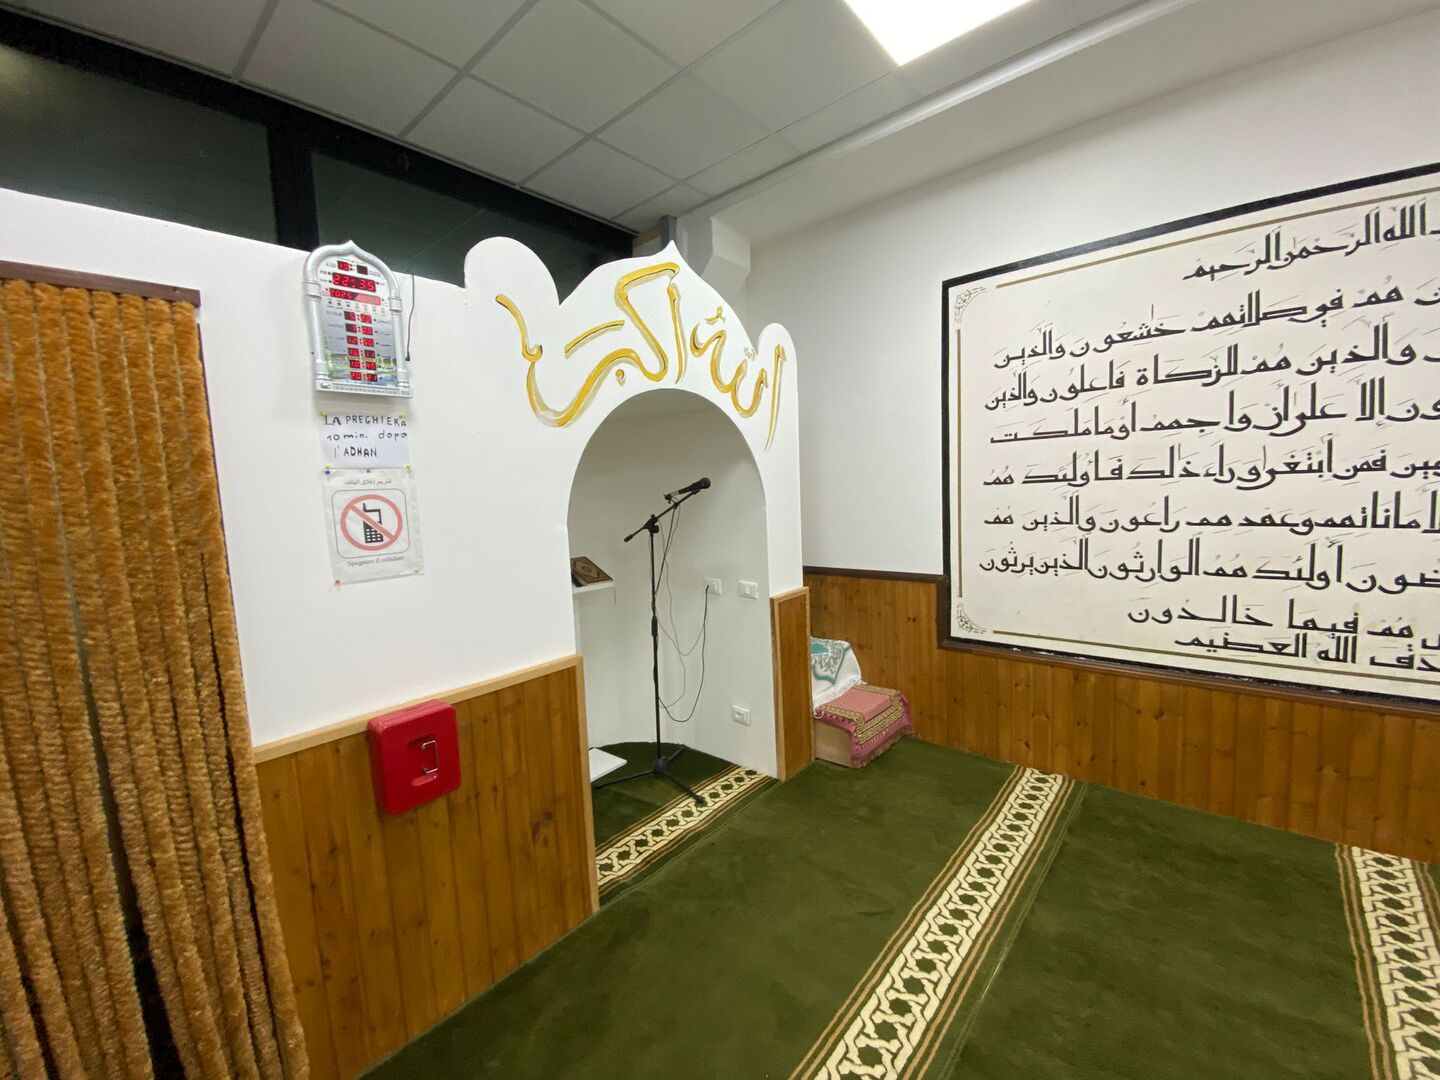 22:35
2025
LA PREGHIERA
10 min. dopo
l'ADHAN
الله أكبر
Spegnere il cellulare
الله الرحمن الرحيم
هم في صلاتهم خاشعون والذين
والذين هم للزكاة فاعلون والذين
إلا على أزواجهم أو ما ملكت
فمن ابتغى وراء ذالك فأولئك هم
لأماناتهم وعهدهم راعون والذين هم
أولئك هم الوارثون الذين يرثون
هم فيها خالدون
الله العظيم